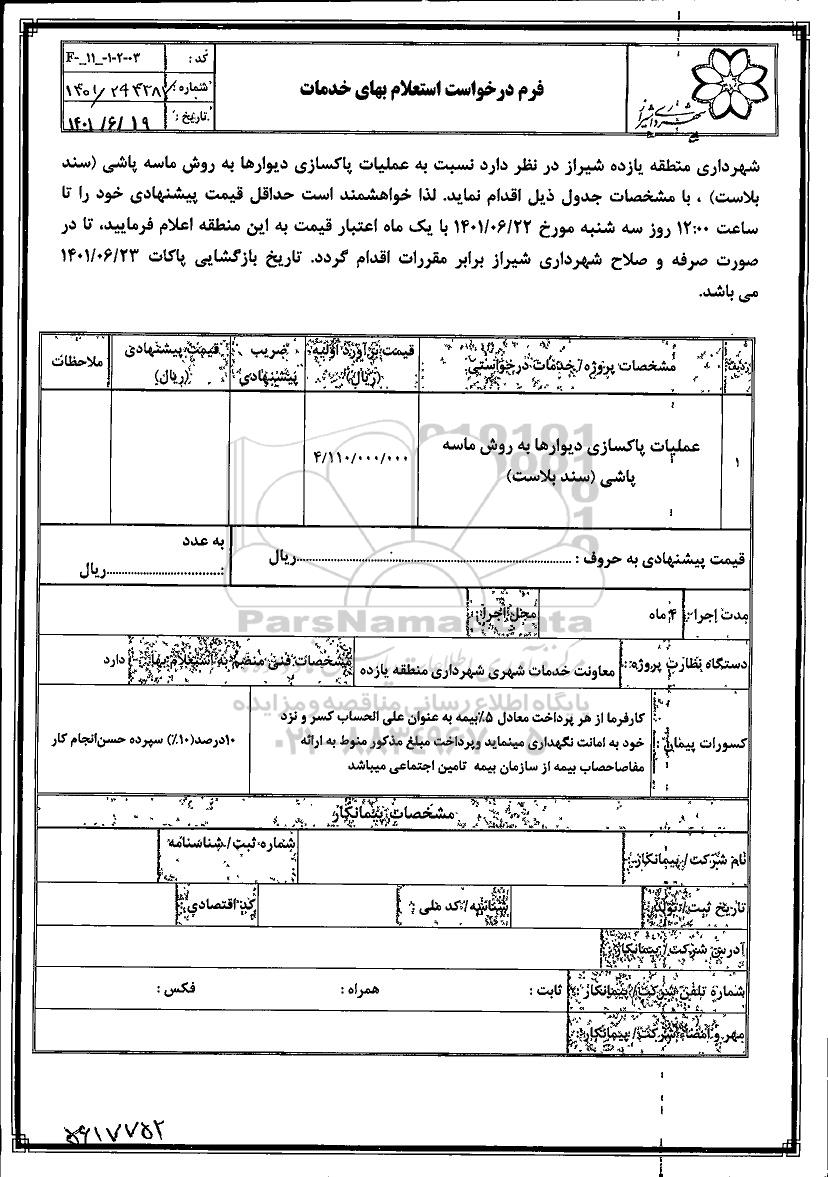 کد : F-_۱۱_-۱-۲--۰۳
شماره : ۱۴۰۱/۲۴۴۳۸
تاریخ : ۱۴۰۱/۶/۱۹
فرم درخواست استعلام بهای خدمات
شهرداری شیراز
شهرداری منطقه یازده شیراز در نظر دارد نسبت به عملیات پاکسازی دیوارها به روش ماسه پاشی (سند
بلاست) ، با مشخصات جدول ذیل اقدام نماید. لذا خواهشمند است حداقل قیمت پیشنهادی خود را تا
ساعت ۱۲:۰۰ روز سه شنبه مورخ ۱۴۰۱/۰۶/۲۲ با یک ماه اعتبار قیمت به این منطقه اعلام فرمایید، تا در
صورت صرفه و صلاح شهرداری شیراز برابر مقررات اقدام گردد. تاریخ بازگشایی پاکات ۱۴۰۱/۰۶/۲۳
می باشد.
ردیف مشخصات پروژه/خدمات درخواستی قیمت برآورد اولیه (ریال) ضریب پیشنهادی قیمت پیشنهادی (ریال) ملاحظات
۱ عملیات پاکسازی دیوارها به روش ماسه ۴/۱۱۰/۰۰۰/۰۰۰
پاشی (سند بلاست)
قیمت پیشنهادی به حروف : ..........ریال
به عدد
:..........ریال
مدت اجرا : ۴ ماه محل اجرا :
دستگاه نظارت پروژه : معاونت خدمات شهری شهرداری منطقه یازده مشخصات فنی منضم به استعلام بها : دارد
کسورات پیمان
کارفرما از هر پرداخت معادل ۵٪بیمه به عنوان علی الحساب کسر و نزد
خود به امانت نگهداری مینماید وپرداخت مبلغ مذکور منوط به ارائه
مفاصاحصاب بیمه از سازمان بیمه تامین اجتماعی میباشد
۱۰درصد(۱۰٪) سپرده حسن‌انجام کار
مشخصات پیمانکار
نام شرکت/ پیمانکار: شماره ثبت/ شناسنامه
تاریخ ثبت/ تولد شناسه/ کد ملی : کد اقتصادی :
آدرس شرکت/ پیمانکار:
شماره تلفن شرکت/ پیمانکار : ثابت : همراه : فکس :
مهر و امضاء شرکت/ پیمانکار:
ParsNamadData
پایگاه اطلاع رسانی مناقصه و مزایده